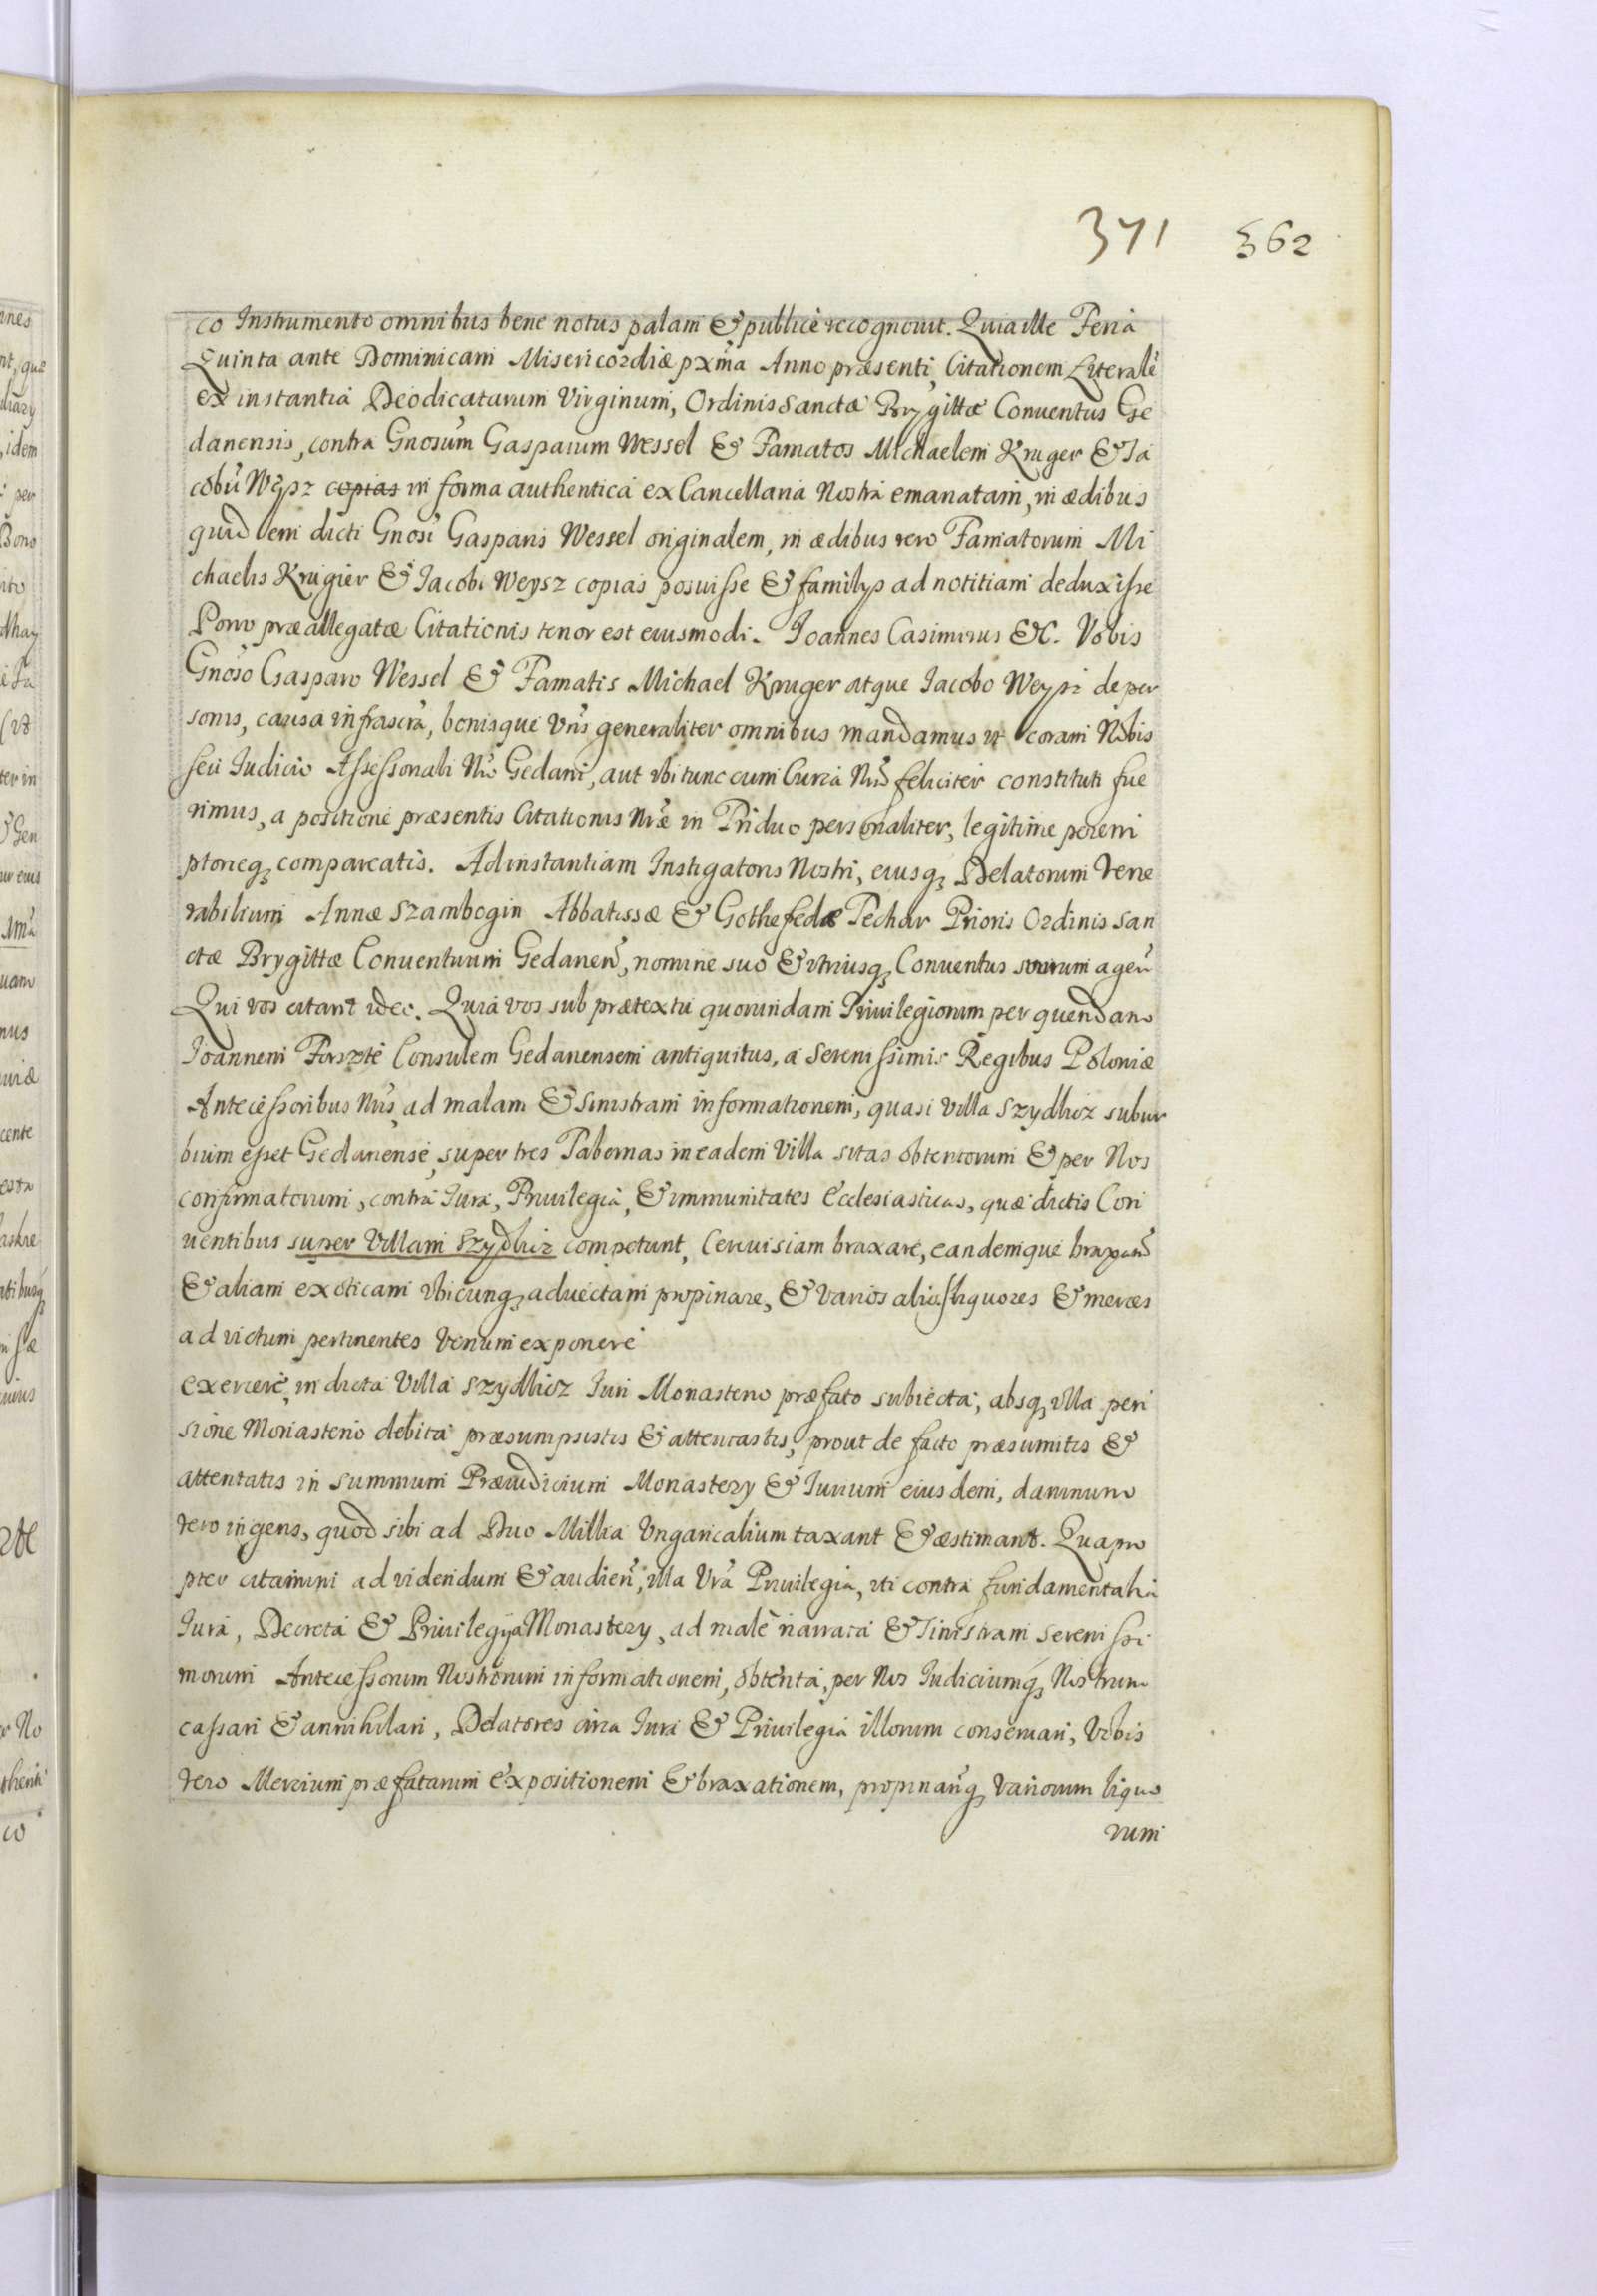 371 362
co Instrumento omnibus bene notus palam & publicè recognouit. Quia ille Feria
Quinta ante Dominicam Misericordiæ pxm̃a Anno præsenti, Citationem Literalẽ
ex instantia Deodicatarum Virginum, Ordinis Sanctæ Brygittæ Conuentus Ge
danensis, contra Gnosum Gasparum Wessel & Famatos Michaelem Kruger & Ia
cobũ Weysz copias in forma authentica ex Cancellaria Nostra emanatam, in ædibus
quidem dicti Gnosi Gasparis Wessel originalem, in ædibus vero Famatorum Mi
chaelis Krugier & Iacobi Weysz copias posuisse & familys ad notitiam deduxisse
Porro præallegatæ Citationis tenor est eiusmodi. Ioannes Casimirus &C. Vobis
Gnoso Gasparo Wessel & Famatis Michael Kruger atque Iacobo Weysz de per
sonis, causa infrascrã, bonisque Vrĩs generaliter omnibus mandamus vt coram Nobis
seu Iudicio Assessoriali Nrõ Gedani, aut vbi tunc cum Curia Nrã feliciter constituti fue
rimus, a positione præsentis Citationis Nræ in Triduo personaliter, legitime perem
ptorieq comparcatis. Ad instantiam Instigatoris Nostri, eiusq Delatorum Vene
rabilium Annæ Szambogin Abbatissæ & Gothefedæ Pechar Prioris Ordinis San
ctæ Brygittæ Conuentuum Gedanen̄, nomine suo & vtriusq Conuentus suorum agen̄
Qui vos citant ideo. Quia vos sub prætextu quorundam Priuilegiorum per quendam
Ioannem Forszte Consulem Gedanensem antiquitus, a Serenissimis Regibus Poloniæ
Antecessoribus Nrĩs, ad malam & sinistram informationem, quasi Villa Szydlicz subur
bium esset Gedanense, super tres Tabernas in eadem Villa sitas obtentorum & per Nos
confirmatorum, contra Iura, Priuilegia, & immunitates Ecclesiasticas, quæ dictis Con
uentibus super Villam Szydlicz competunt, Ceruisiam braxare, eandemque braxatã
& aliam exoticam vbicunq aduectam propinare, & varios alios liquores & merces
ad victum pertinentes Venum exponere
exercere, in dicta Villa Szydlicz Iuri Monasterio præfato subiecta, absq vlla pen
sione Monasterio debita præsumpsistis & attentastis, prout de facto præsumitis &
attentatis in summum Præiudicium Monastery & Iurium eiusdem, damnum
vero ingens, quod sibi ad Duo Millia Vngaricalium taxant & æstimant. Quapro
pter citamini ad videndum & audien̄, illa Vrã Priuilegia, vti contra fundamentalia
Iura, Decreta & Priuilegya Monastery, ad malè narrata & sinistram Serenissi
morum Antecessorum Nostrorum informationem, obtenta, per Nos Iudiciumq Nostrum
cassari & annihilari, Delatores circa Iura & Priuilegia illorum conseruari, Vobis
vero Mercium præfatarum expositionem & braxationem, propinan̄q variorum liquo
rum